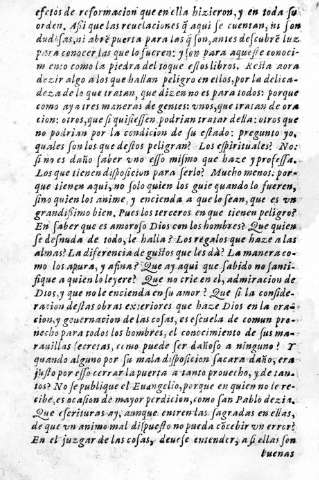 efetos de reformacion que en ella hizieron, y en toda su
orden. Assi que las reuelaciones q̃ aqui se cuentan, ni son
dudosas, ni abrẽ puerta para las q̃ son, antes descubrẽ luz
para conocer las que lo fueren: y son para aqueste conoci-
miento como la piedra del toque estos libros. Resta aora
dezir algo a los que hallan peligro en ellos, por la delica-
deza de lo que tratan, que dizen no es para todos: porque
como aya tres maneras de gentes: vnos, que tratan de ora-
cion: otros, que si quisiessen, podrian tratar della: otros que
no podrian por la condicion de su estado: pregunto yo,
quales son los que destos peligran? Los espirituales? No:
si no es daño saber vno esso mismo que haze y professa.
Los que tienen disposicion para serlo? Mucho menos: por-
que tienen aqui, no solo quien los guie quando lo fueren,
sino quien los anime, y encienda a que lo sean, que es vn
grandissimo bien. Pues los terceros en que tienen peligro?
En saber que es amoroso Dios con los hombres? Que quien
se desnuda de todo, le halla? Los regalos que haze a las
almas? La diferencia de gustos que les dà? La manera co-
mo los apura, y afina? Que ay aqui que sabido no santi-
fique a quien lo leyere? Que no crie en el, admiracion de
Dios, y que no le encienda en su amor? Que si la conside-
racion destas obras exteriores que haze Dios en la cria-
cion, y gouernacion de las cosas, es escuela de comun pro-
uecho para todos los hombres, el conocimiento de sus ma-
rauillas secretas, como puede ser dañoso a ninguno? Y
quando alguno por su mala disposicion sacara daño, era
justo por esso cerrar la puerta a tanto prouecho, y de tan-
tos? No se publique el Euangelio, porque en quien no le re-
cibe, es ocasion de mayor perdicion, como san Pablo dezia.
Que escrituras ay, aunque entren las sagradas en ellas,
de que vn animo mal dispuesto no pueda cõcebir vn error?
En el juzgar de las cosas, deuese entender, a si ellas son
buenas